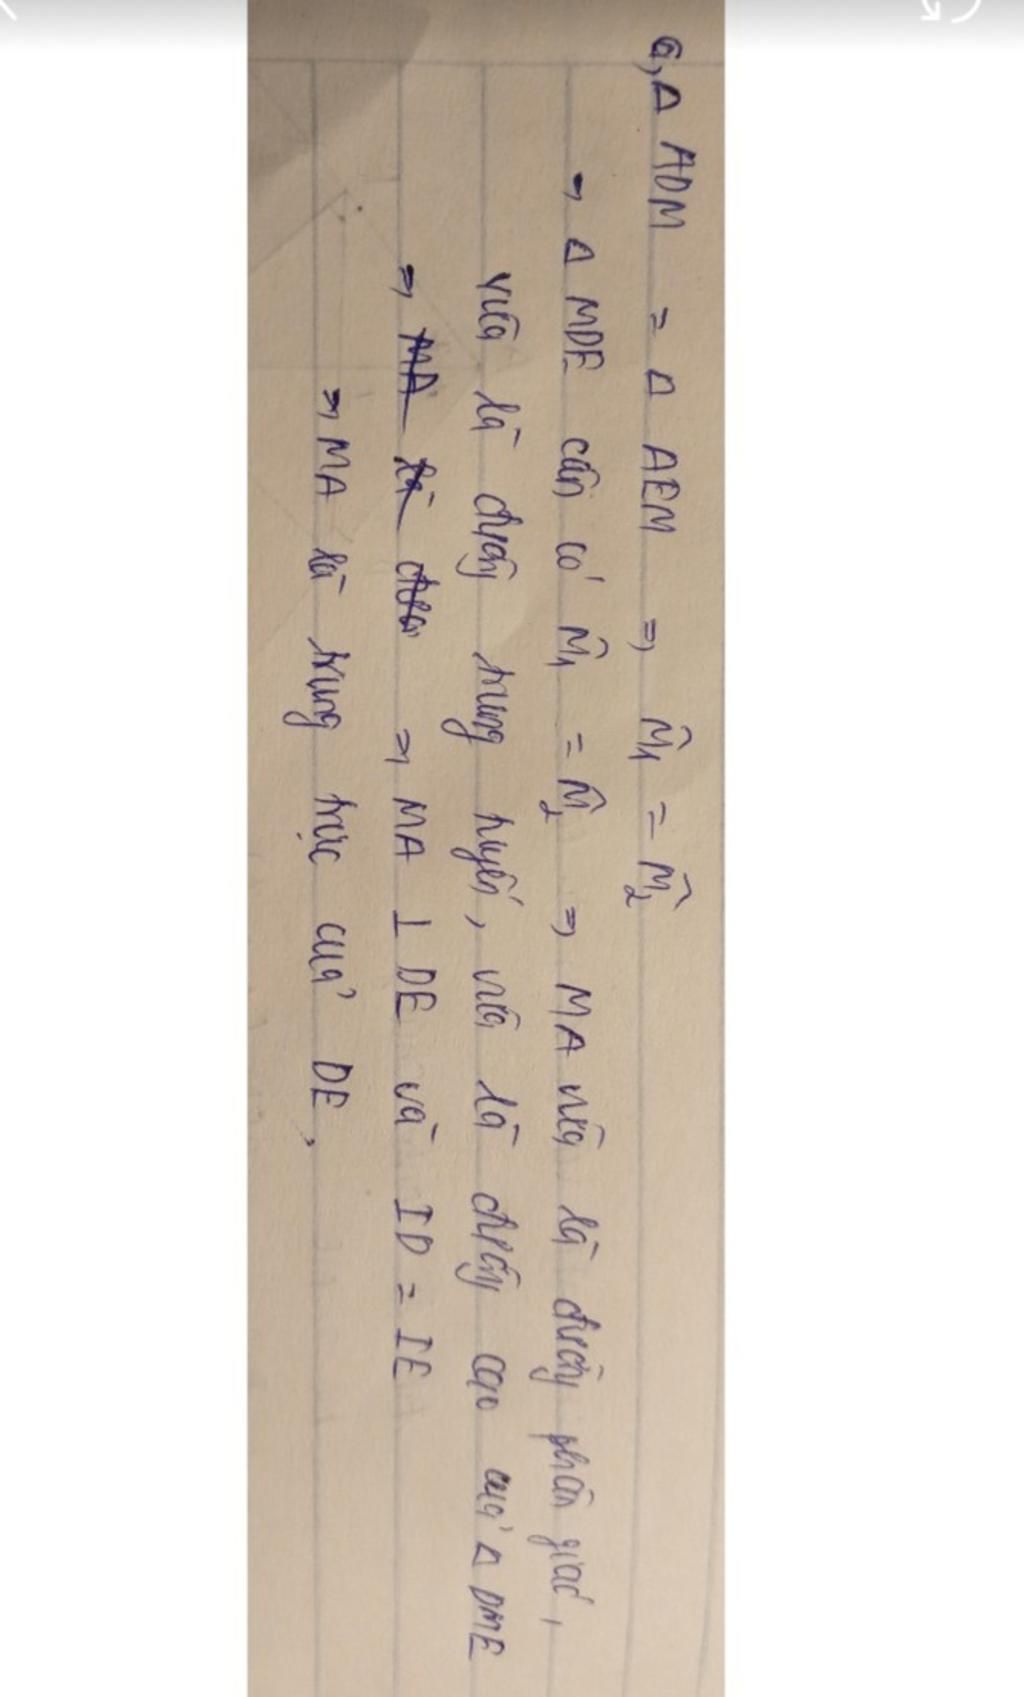 a, Δ ADM = Δ AEM ⇒ M̂₁ = M̂₂
⇒ Δ MDE cân có M̂₁ = M̂₂ ⇒ MA vừa là đường phân giác,
vừa là đường trung tuyến, vừa là đường cao của Δ DME
⇒ MA là ⇒ MA ⊥ DE và ID = IE
⇒ MA là trung trực của DE,